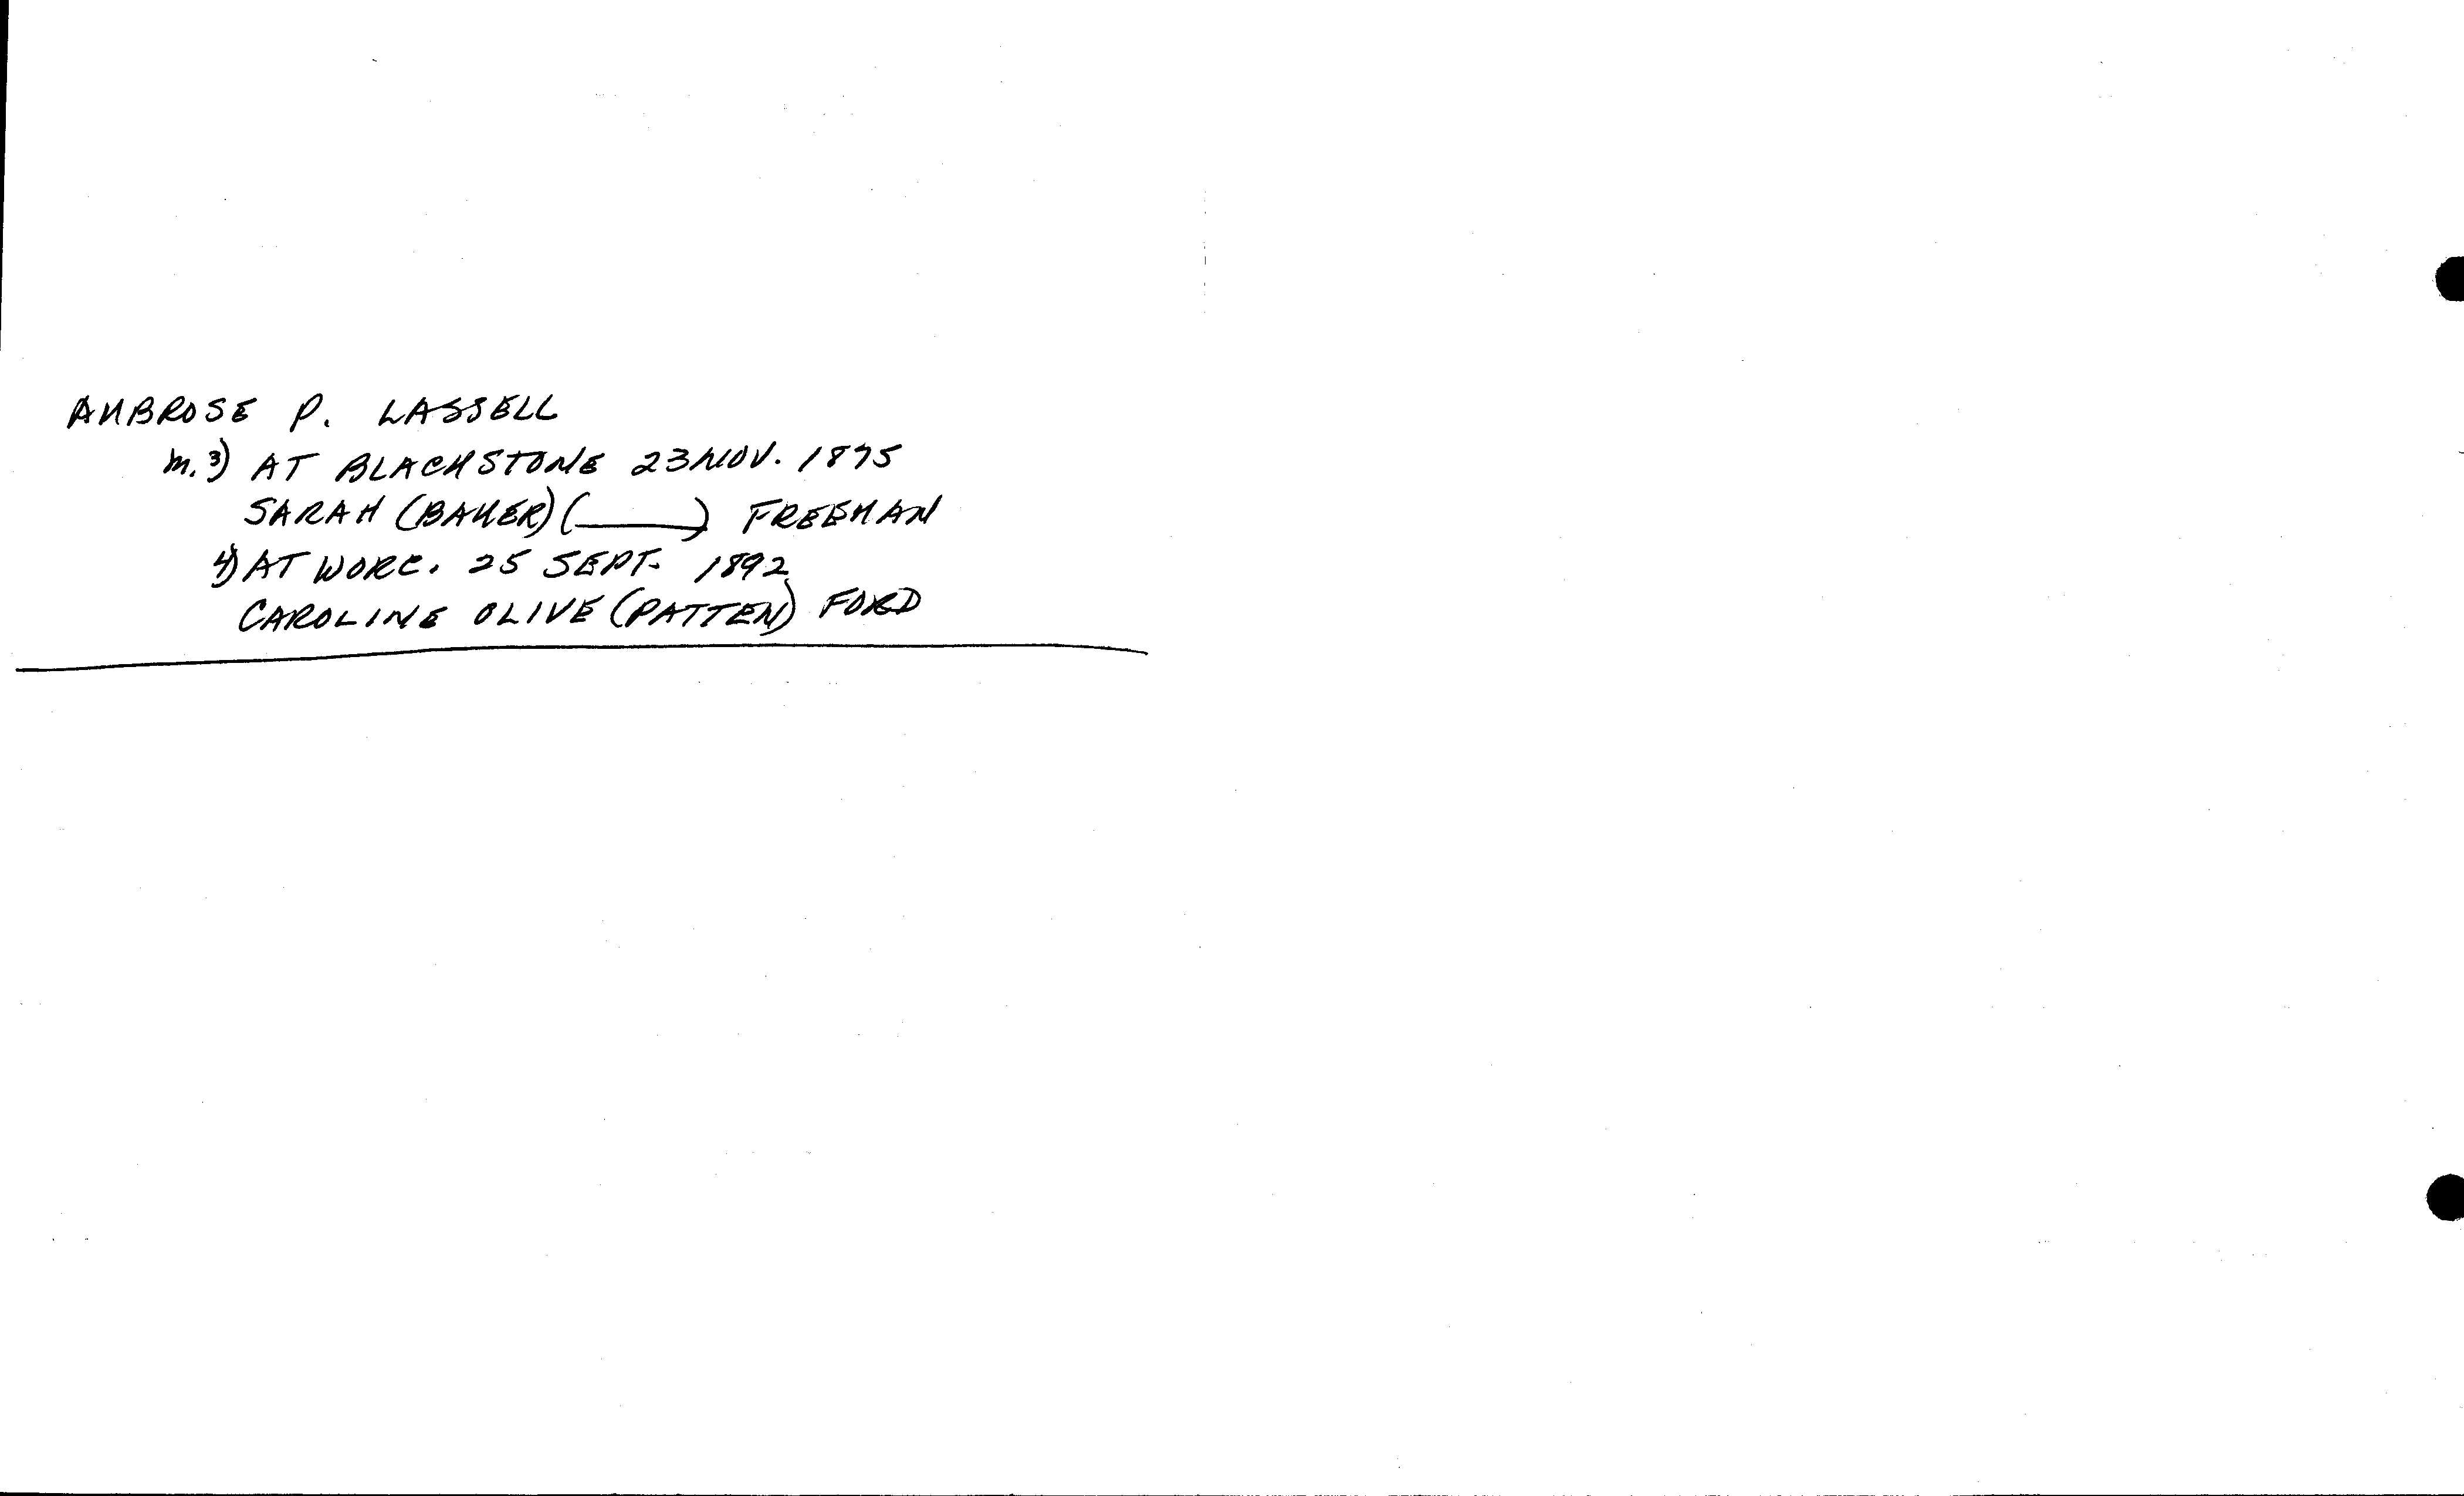 AMBROSE P. LASSELL
m. 3) AT BLACKSTONE 23 NOV. 1875
SARAH (BAKER) (____) FREEMAN
4) AT WORC. 25 SEPT. 1892
CAROLINE OLIVE (PATTEN) FORD